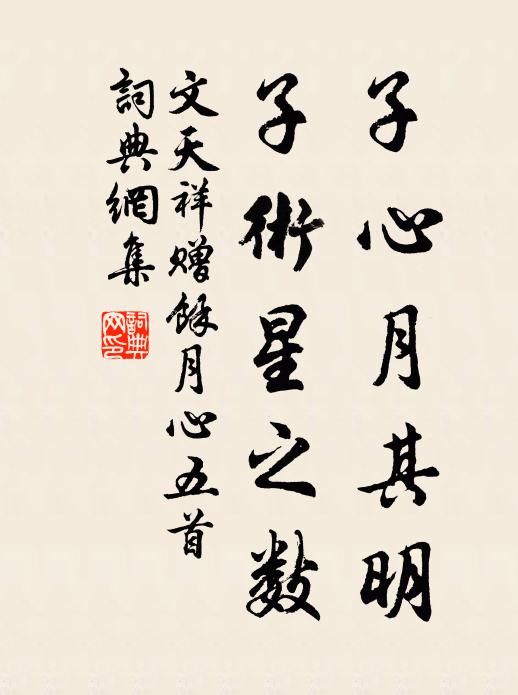 子心月其明
子術星之数
文天祥贈餘月心五首
詞典網集
詞典網印